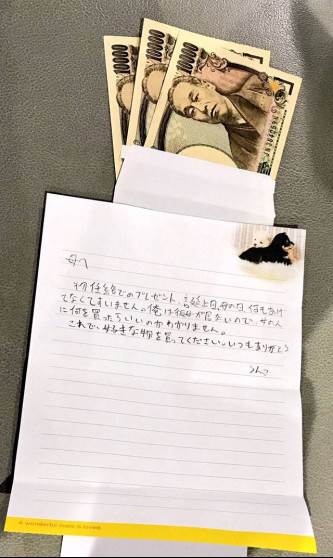 10000
10000
10000
母へ
初任給でのプレゼント、誕生日、母の日、何もあげ
てなくてすいません。俺は彼女が居ないので、女の人
に何を買ったらいいのかわかりません。
これで、好きな物を買ってください。いつもありがとう
A wonderful mate is loved